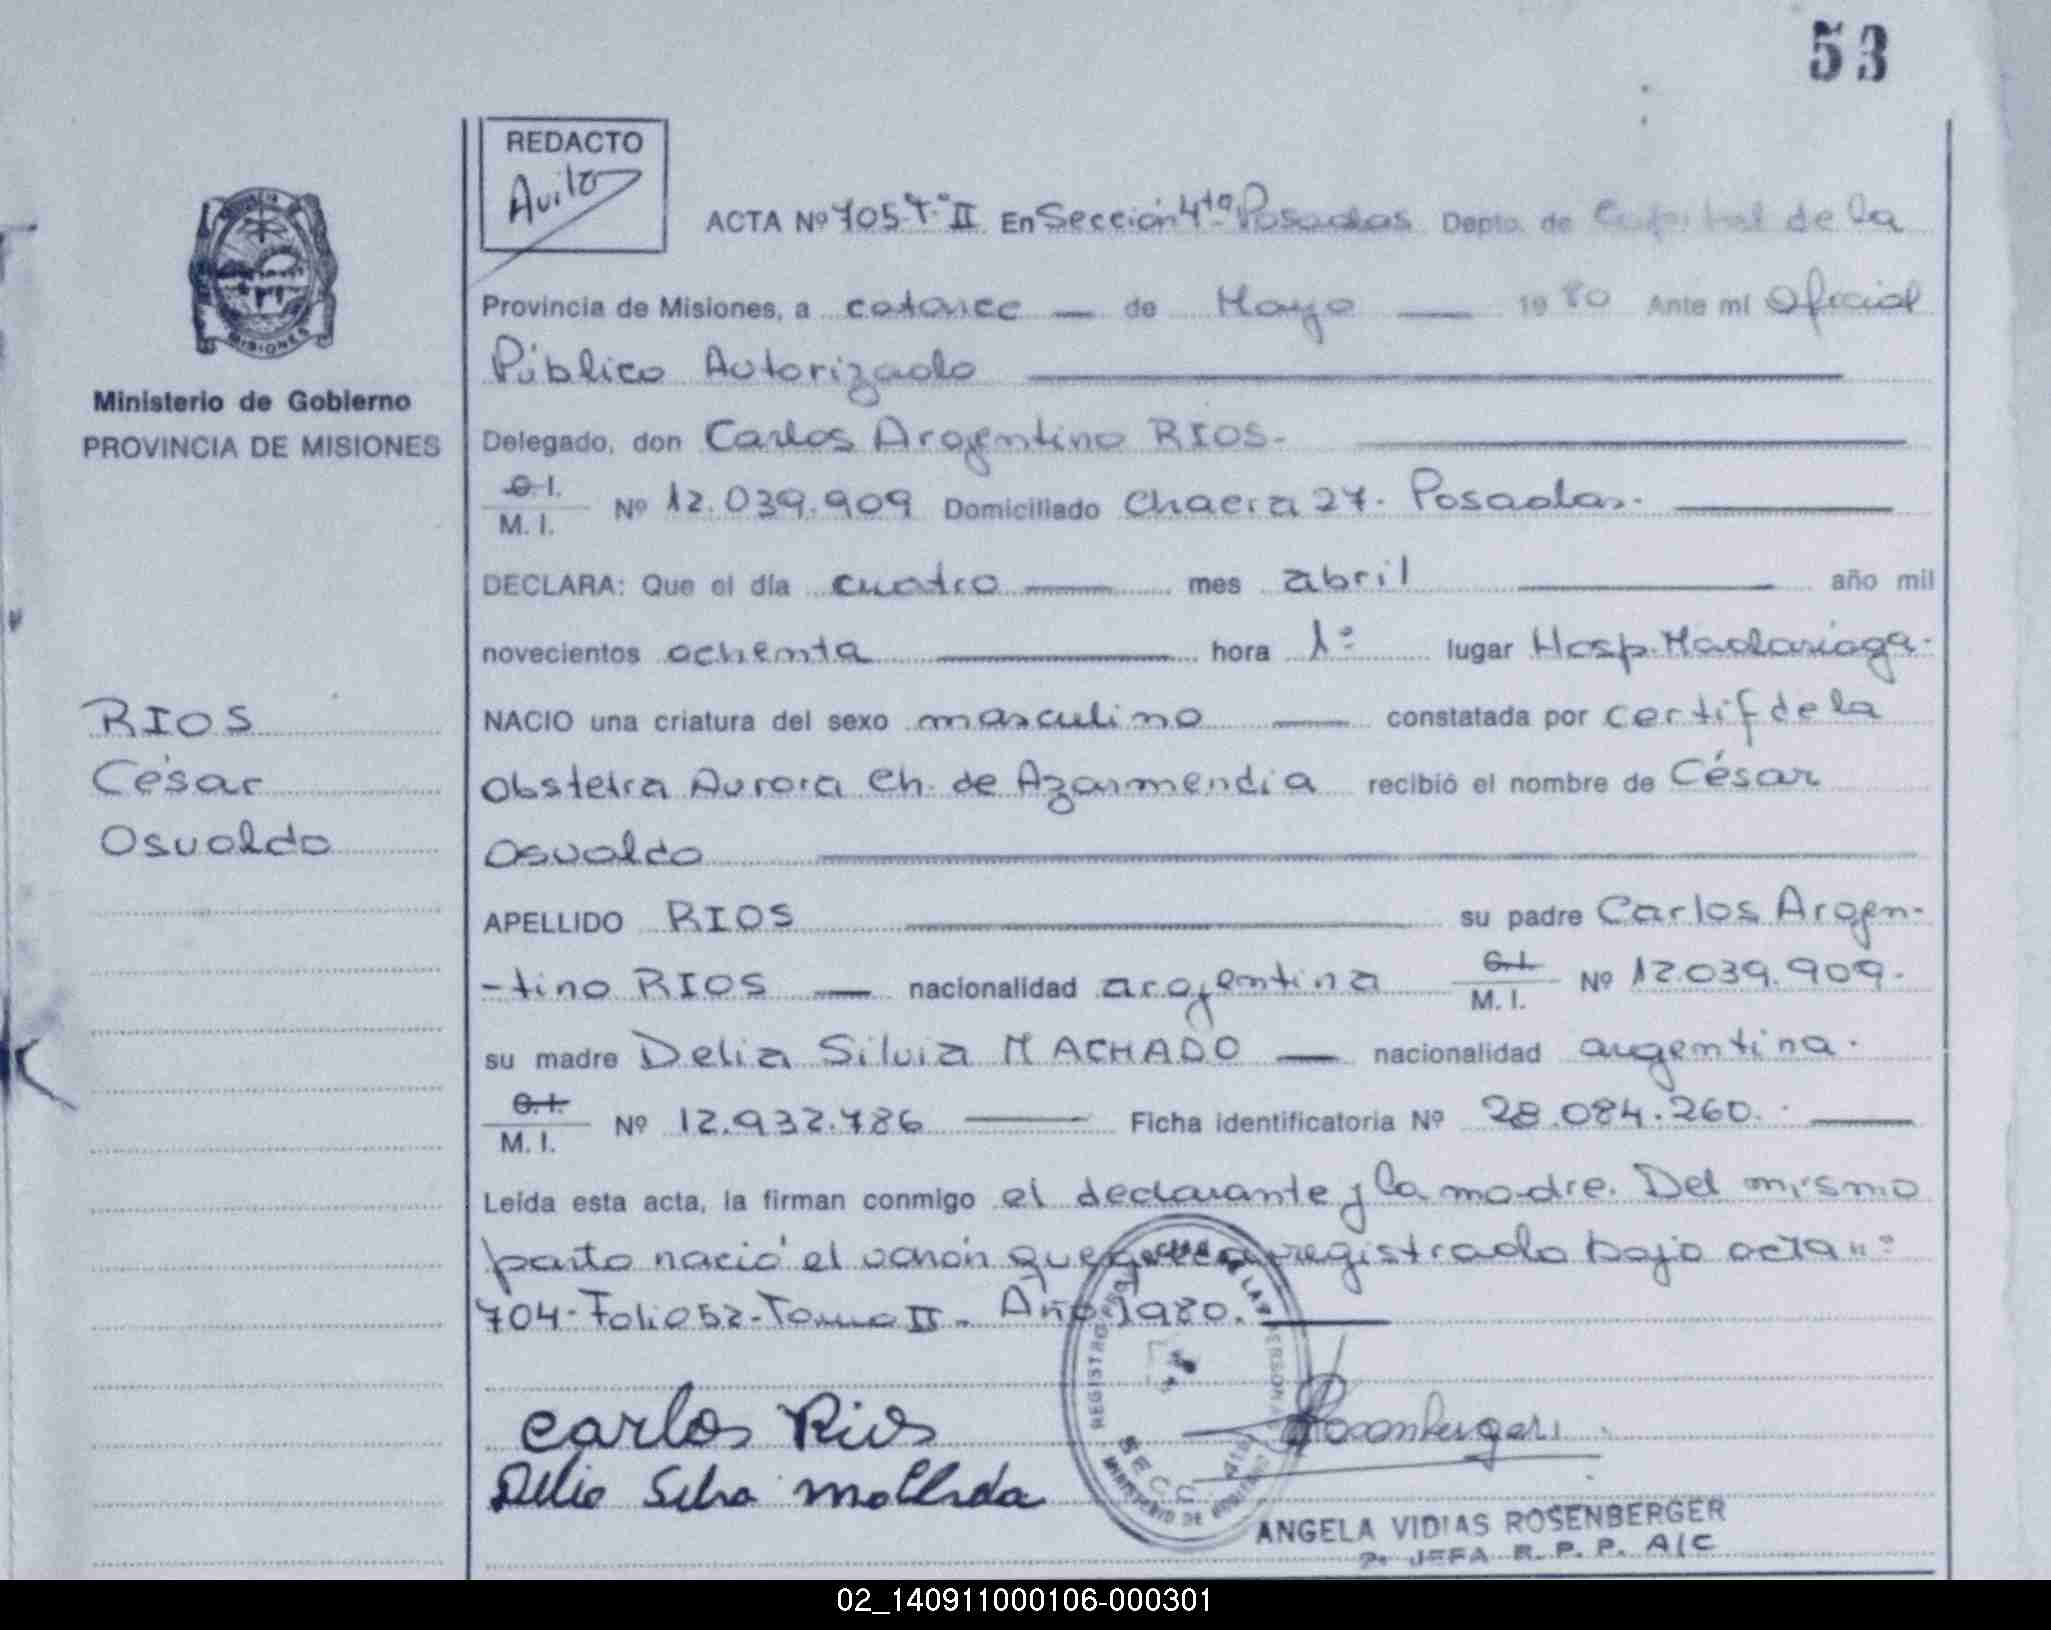 53
REDACTO
Avila
MISIONES
Ministerio de Gobierno
PROVINCIA DE MISIONES
ACTA Nº 705 Tº II En Sección 4ta Posadas Depto. de Capital de la
Provincia de Misiones, a catorce — de Mayo — 1980 Ante mi Oficial
Público Autorizado
Delegado, don Carlos Argentino RIOS.
C.I. M.I. Nº 12.039.909 Domiciliado Chacra 27. Posadas.
DECLARA: Que el día cuatro — mes abril — año mil
novecientos ochenta — hora 1º lugar Hosp. Madariaga.
RIOS
César
Osvaldo
NACIO una criatura del sexo masculino — constatada por certif de la
Obstetra Aurora Ch. de Azarmendia recibió el nombre de César
Osvaldo
APELLIDO RIOS — su padre Carlos Argen-
-tino RIOS — nacionalidad argentina C.I. M.I. Nº 12.039.909.
su madre Delia Silvia MACHADO — nacionalidad argentina.
C.I. M.I. Nº 12.932.786 — Ficha identificatoria Nº 28.084.260. —
Leída esta acta, la firman conmigo el declarante y la madre. Del mismo
parto nació el varón que queda registrado bajo acta nº
704-Folio 52-Tomo II. Año 1980. —
Carlos Rios
Rosenberger
SECC
ANGELA VIDIAS ROSENBERGER
2º JEFA R. P. P. A/C
02_140911000106-000301